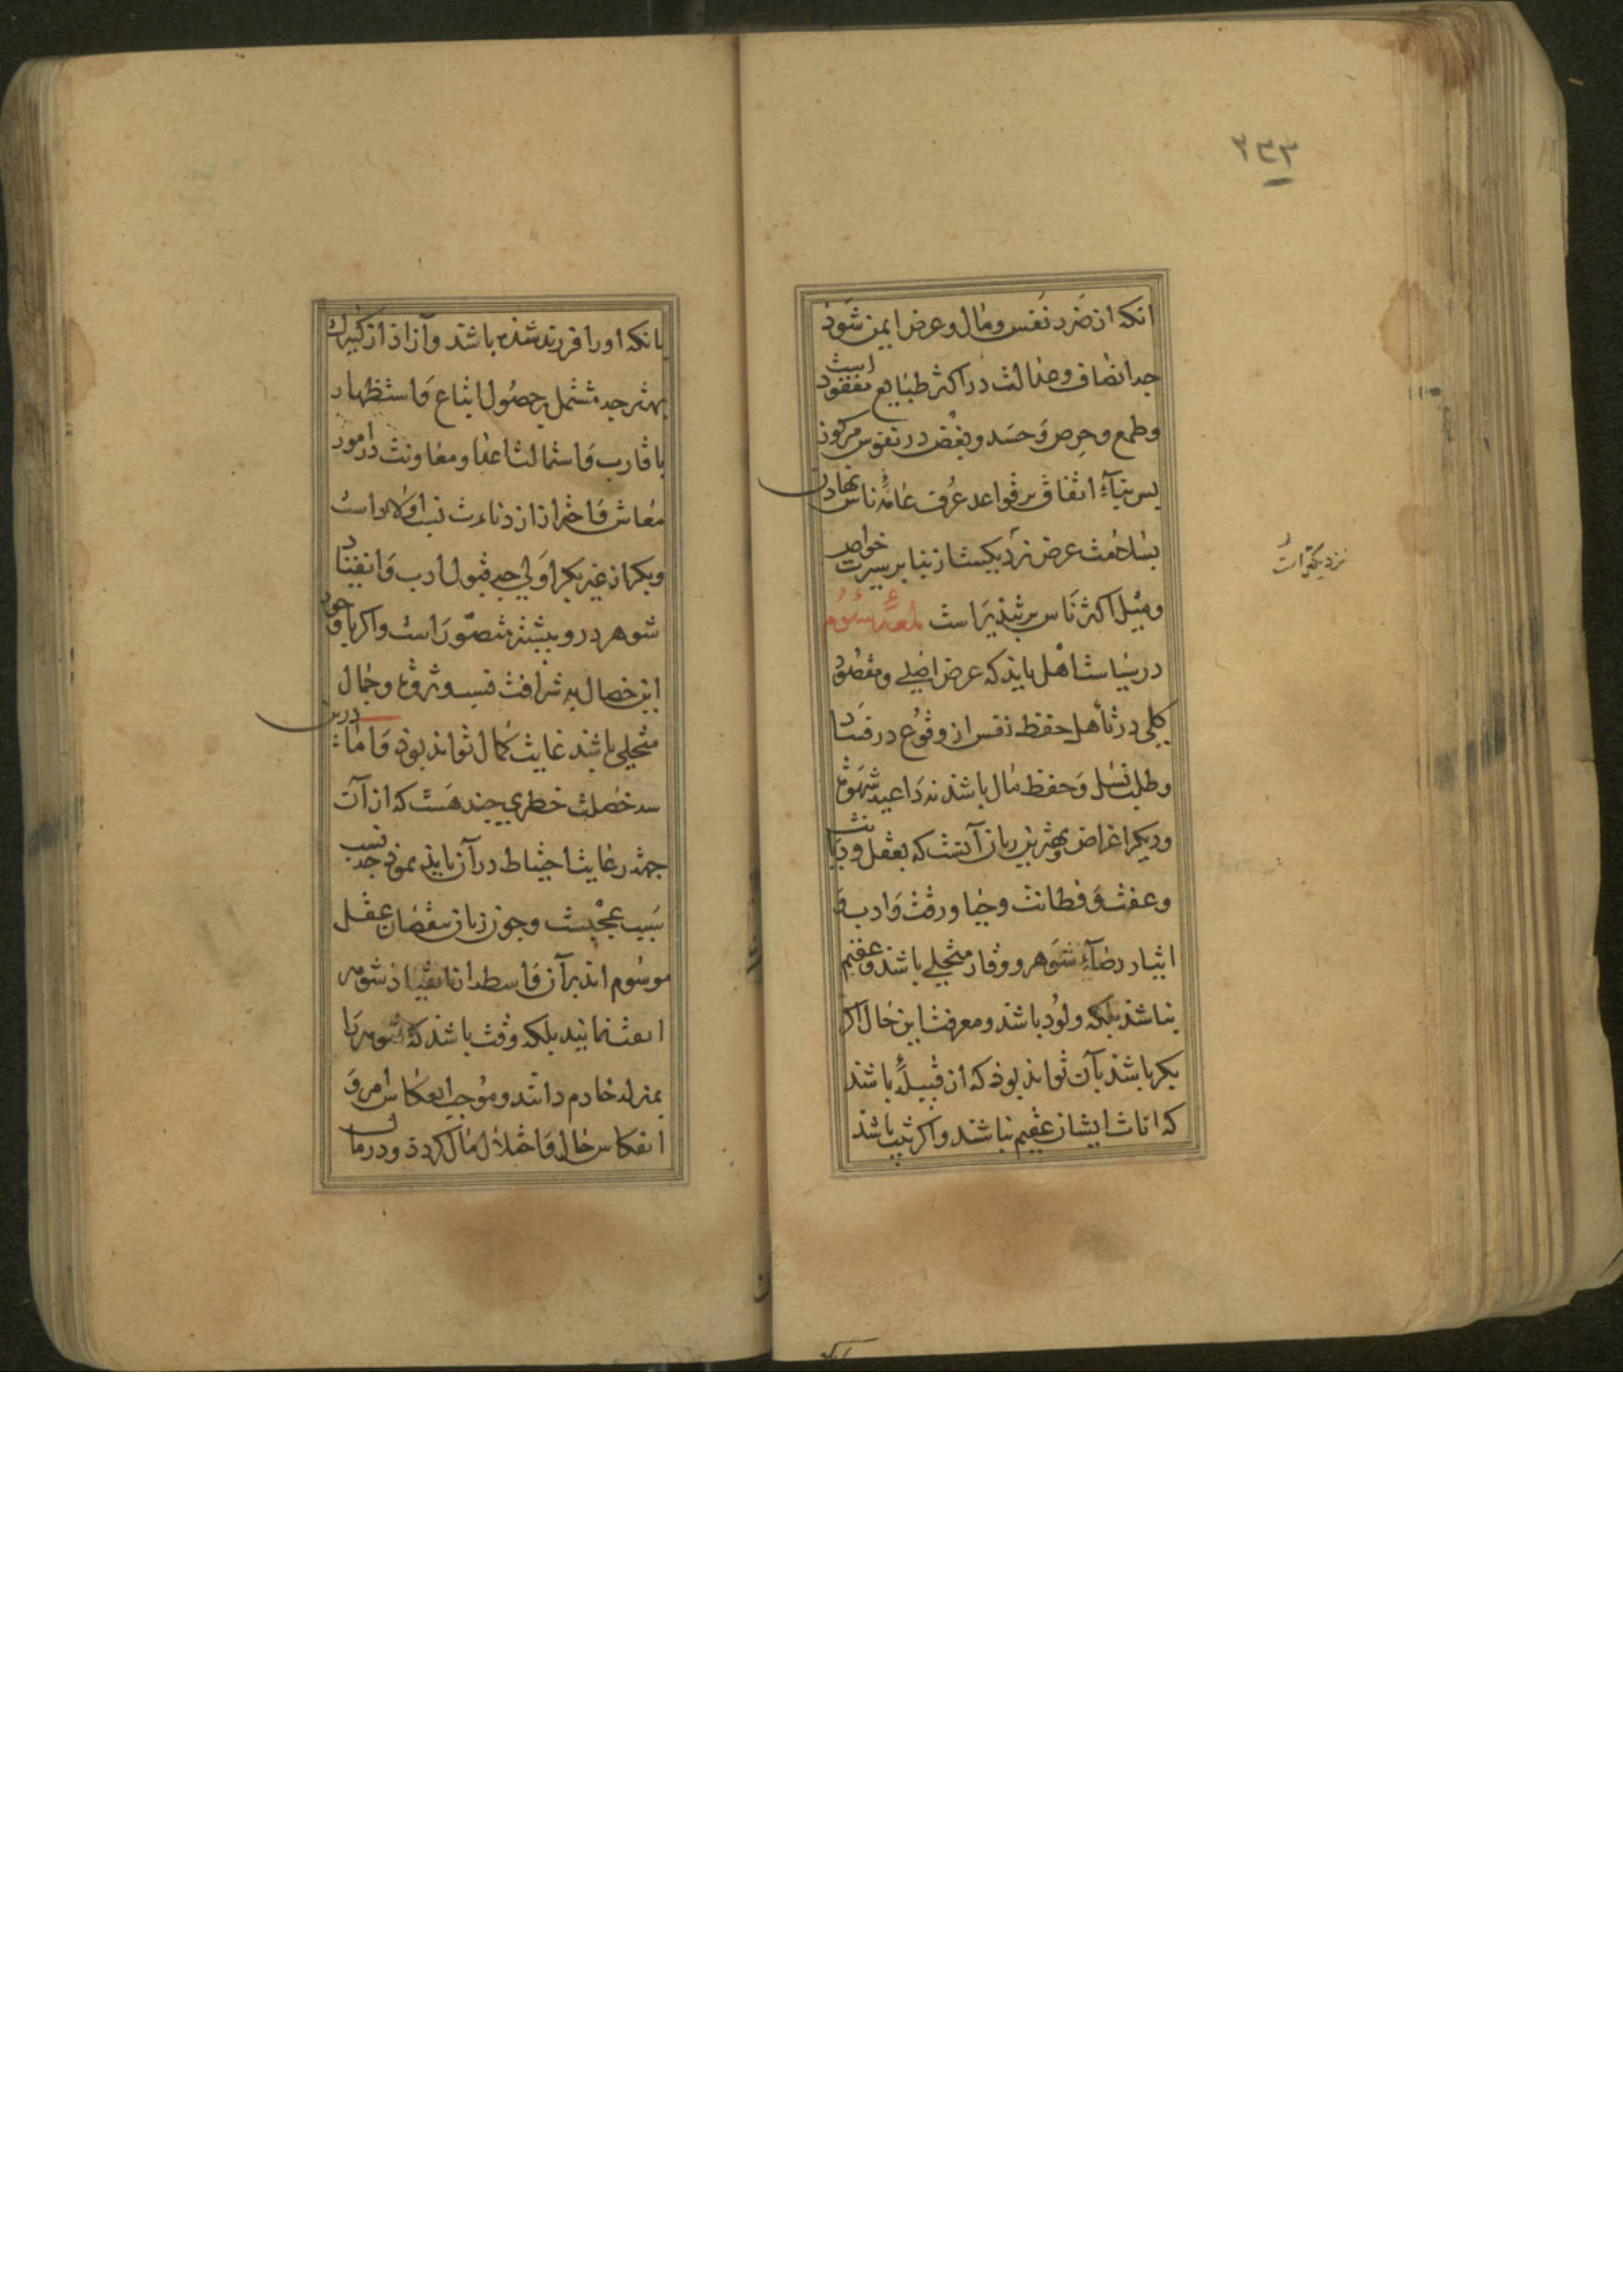 ۲۳۳
انکه از ضرر نفس و مال و عرض ایمن شود
جه انصاف و عدالت در اکثر طبایع مفقود است
و طمع و حرص و حسد و بغض در نفوس مرکوز
پس بنآء اتفاق بر قواعد عرف عامهٔ ناس نهادن
بسلامت عرض نزدیکست از بنا بر سیرت خواص
و میل اکثر ناس بر تبذیر است لمعهٔ سوم
در سیاست اهل باید که عرض اصلی و مقصود
کلی در تأهل حفظ نفس از وقوع در فساد
و طلب نسل و حفظ مال باشد نه داعیه شهوة
و دیکر اغراض و بهترین زنان آنست که بعقل و دیانت
و عفت و فطانت و حیا و رقت و ادب و
ایثار رضآء شوهر و وقار متحلی باشد و عقیم
نباشد بلکه ولود باشد و معرفت این حال اکر
بکر باشد بآن تواند بوذ که از قبیلهٔ باشد
که اناث ایشان عقیم نباشند و اکر ثیب باشد
نزدیکتر است
بانکه او را فرزند شده باشد و آزاد از کنیزک
بهتر جه مشتمل بر حصول اتباع و استظهار
باقارب و استمالت اعدا و معاونت در امور
معاش و احتراز از دناءت نسب اولاد است
و بکر از غیر بکر اولی جه قبول ادب و انقیاد
شوهر درو بیشتر متصور است و اکر با وجود
این خصال به شرافت نسب و ثروة و جمال
متحلی باشد غایت کمال تواند بوذ و اما درین
سه خصلت خطری چند هست که از آن
جهت رعایت احتیاط در آن باید نموذ جه نسب
سبب عجبست و چون زنان بنقصان عقل
موسوم اند بر آن واسطه از انقیاد شوهر
نمایند بلکه وقت باشد که شوهر را
بمنزله خادم دانند و موجب انعکاس امر و
انفکاس حال و اختلال مال کردد و در مال